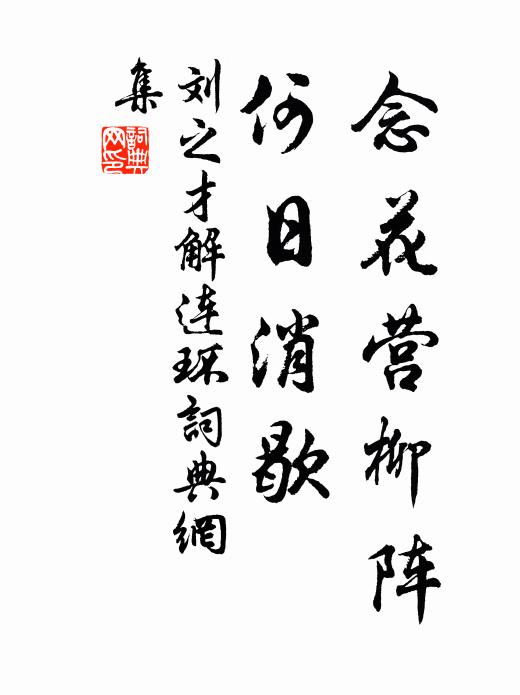 念花营柳阵
何日消歇
刘之才解连环詞典網
集
詞典
网印